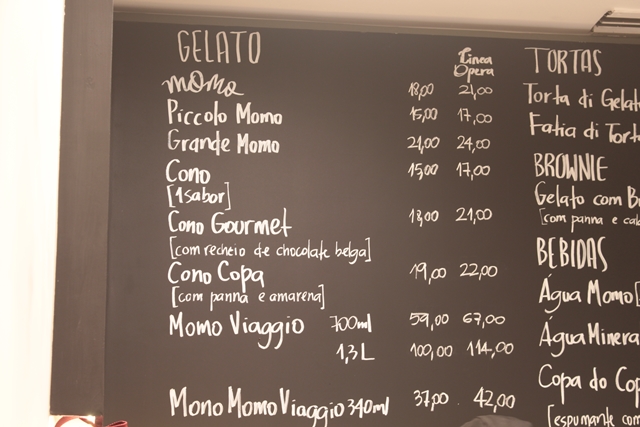 GELATO
Linea
Opera
momo 18,00 21,00
Piccolo Momo 15,00 17,00
Grande Momo 21,00 24,00
Cono 15,00 17,00
[1 sabor]
Cono Gourmet 18,00 21,00
[com recheio de chocolate belga]
Cono Copa 19,00 22,00
[com panna e amarena]
Momo Viaggio 700ml 59,00 67,00
1,3 L 100,00 114,00
Mono Momo Viaggio 340ml 37,00 42,00
TORTAS
Torta di Gelat
Fatia di Tort
BROWNIE
Gelato com B
[com panna e cal
BEBIDAS
Água Momo [
Água Minera
Copa do Cop
[espumante com